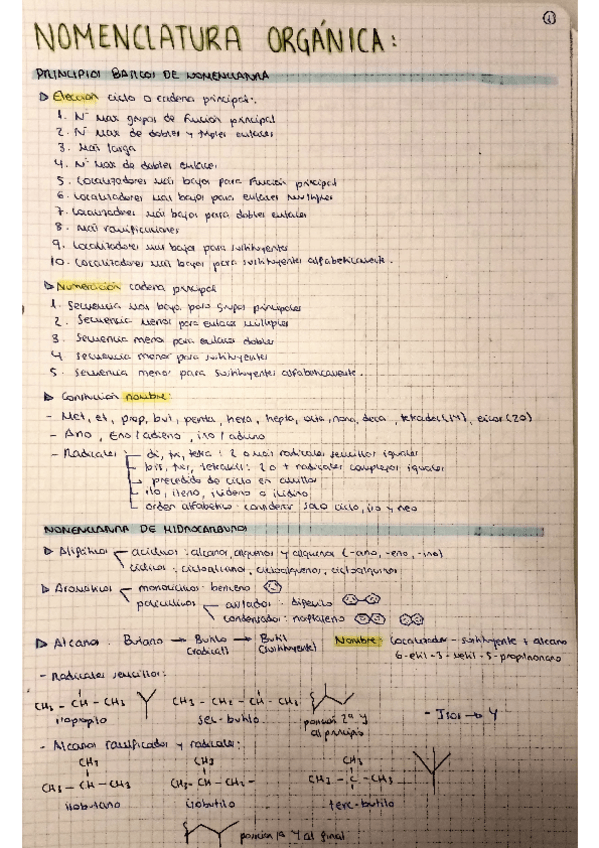 1
NOMENCLATURA ORGÁNICA:
PRINCIPIOS BÁSICOS DE NOMENCLATURA
Elección ciclo o cadena principal:
1. Nº max grupos de función principal
2. Nº max de dobles y triples enlaces
3. Más larga
4. Nº max de dobles enlaces
5. Localizadores más bajos para función principal
6. Localizadores más bajos para enlaces múltiples
7. Localizadores más bajos para dobles enlaces
8. Más ramificaciones
9. Localizadores más bajos para sustituyentes
10. Localizadores más bajos para sustituyentes alfabéticamente.
Numeración cadena principal
1. Secuencia más baja para grupos principales
2. Secuencia menor para enlaces múltiples
3. Secuencia menor para enlaces dobles
4. Secuencia menor para sustituyentes
5. Secuencia menor para sustituyentes alfabéticamente.
Construcción nombre:
- Met, et, prop, but, penta, hexa, hepta, octa, nona, deca, tetradec(14), eicos(20)
- Ano, Eno/adieno, ino/adiino
- Radicales di, tri, tetra: 2 o más radicales sencillos iguales
bis, tris, tetrakis: 2 o + radicales complejos iguales
precedido de ciclo en anillos
ilo, ileno, ilideno o ilidino
orden alfabético: considerar solo ciclo, iso y neo
NOMENCLATURA DE HIDROCARBUROS
Alifáticos acíclicos: alcanos, alquenos y alquinos (-ano, -eno, -ino)
cíclicos: cicloalcanos, cicloalquenos, cicloalquinos
Aromáticos monocíclicos: benceno
policíclicos aislados: difenilo
condensados: naftaleno
Alcanos: Butano → Butilo → Butil Nombre: Localizador - sustituyente + alcano
(radical) (sustituyente) 6-etil-3-metil-5-propilnonano
- Radicales sencillos:
CH3 - CH - CH3 CH3 - CH2 - CH - CH3
isopropilo sec-butilo posición 2ª y al principio - Isos → Y
- Alcanos ramificados y radicales:
CH3 CH3 CH3
CH3 - CH - CH3 CH3 - CH - CH2 - CH3 - C - CH3
isobutano isobutilo terc-butilo
posición 1ª Y al final